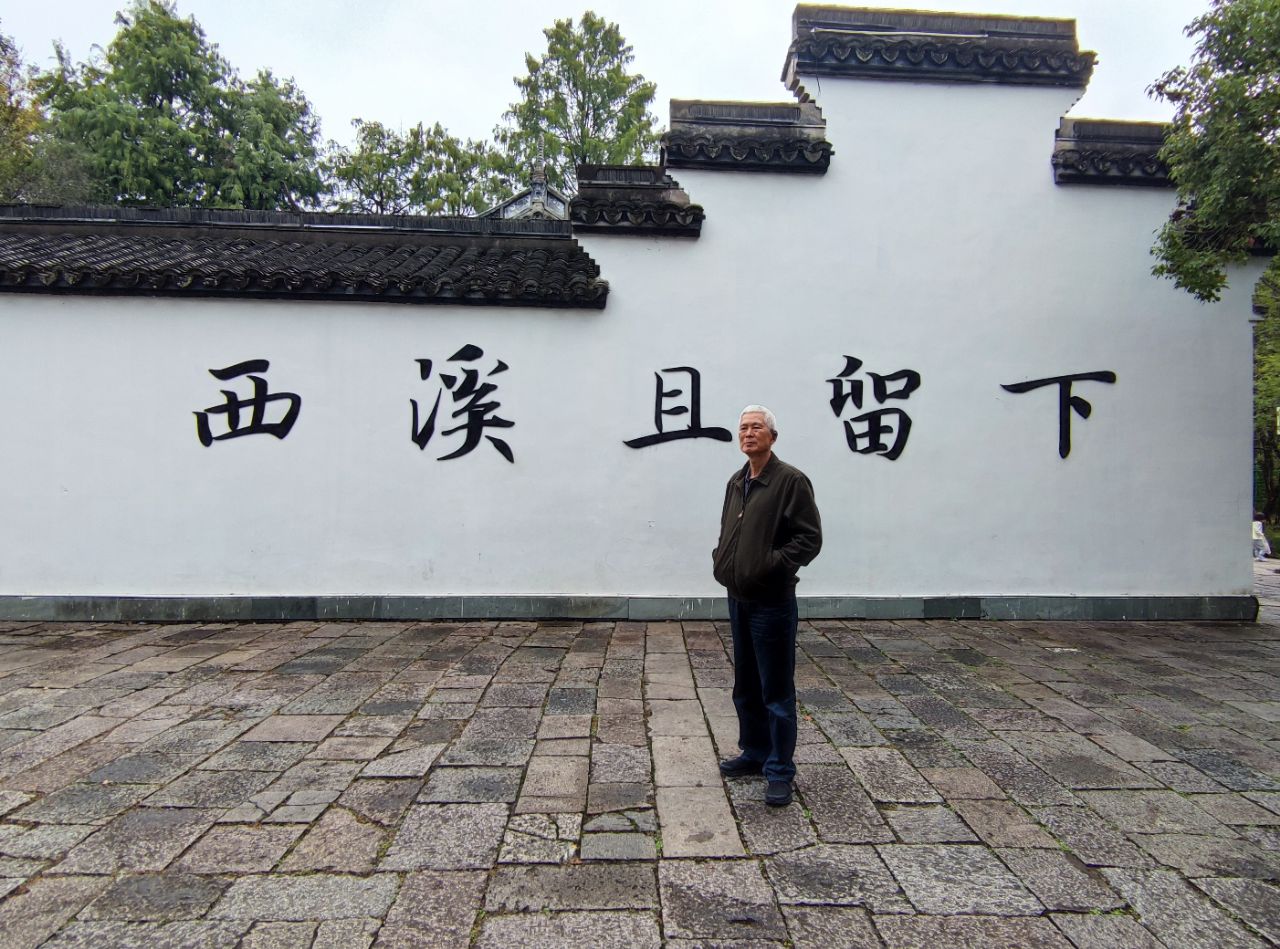 西溪且留下